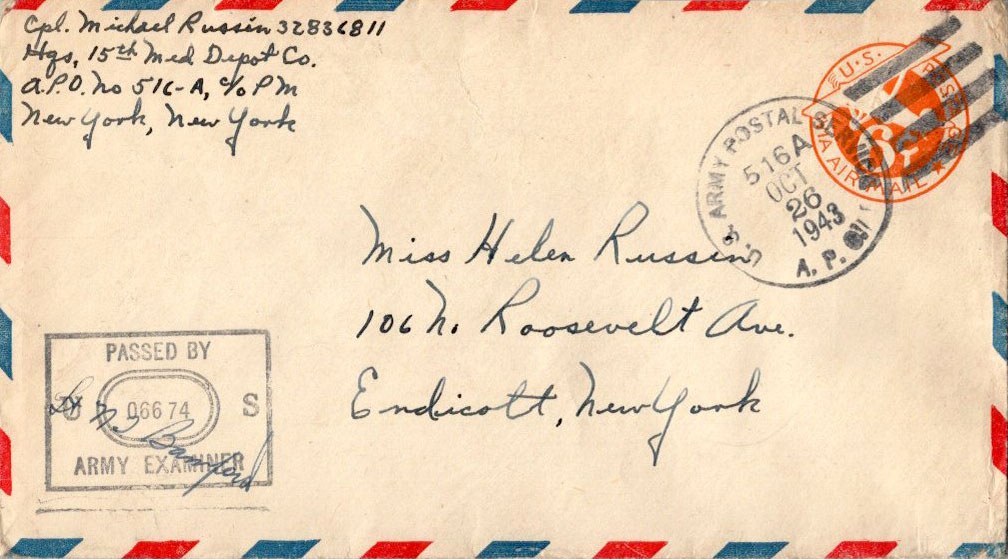 Cpl. Michael Russin 32836811
Hqs, 15th Med Depot Co.
A.P.O. No 516-A, c/o PM
New York, New York
U.S. POSTAGE
6¢
VIA AIR MAIL
U.S. ARMY POSTAL SERVICE
516A
OCT
26
1943
A. P. O.
Miss Helen Russin
106 N. Roosevelt Ave.
Endicott, New York
PASSED BY
U 06674 S
ARMY EXAMINER
Bamford